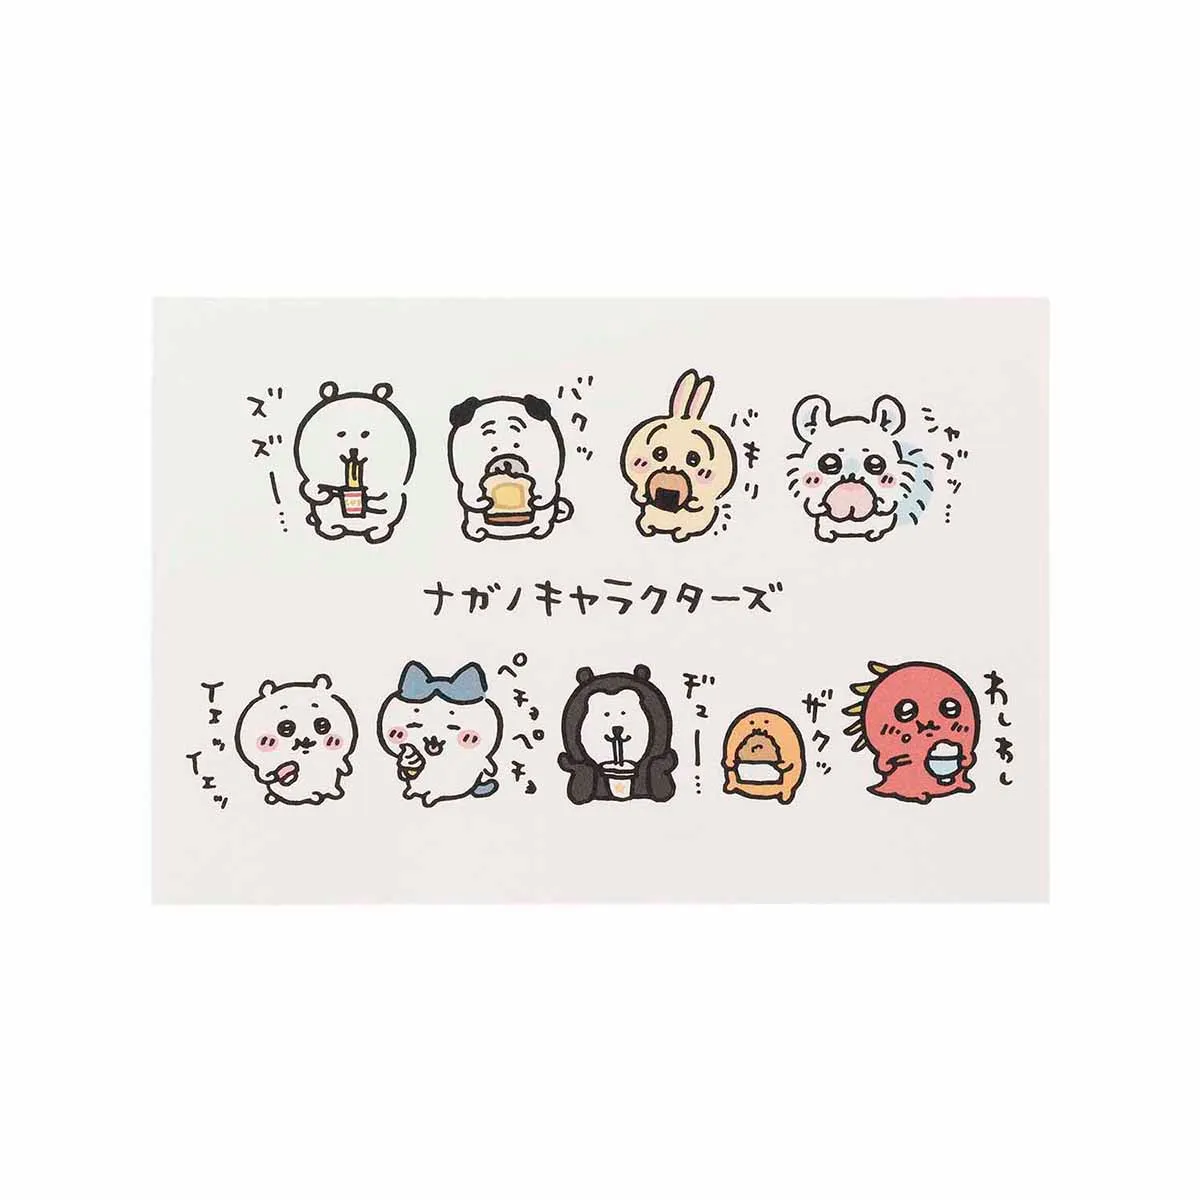 ズズー…
バクッ
バキリ
シャブッ…
ナガノキャラクターズ
イェッイェッ
ペチョペチョ
ヂューー…
ザクッ
わしわし